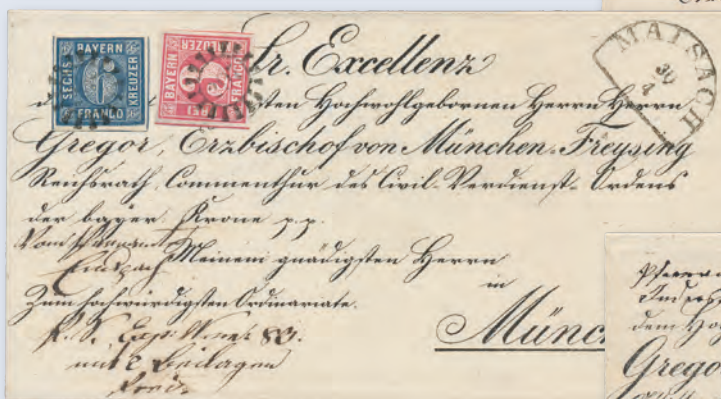 BAYERN
SECHS KREUZER
6
FRANCO
BAYERN
KREUZER
FRANCO
MAISACH
30
4
Sr. Excellenz
Hochwohlgebornen Herrn Herrn
Gregor, Erzbischof von München-Freysing
Reichsrath, Commenthur des Civil-Verdienst-Ordens
der bayer. Krone p.p.
Vom Pfarramt
Meinem gnädigsten Herrn
in
Zum hochwürdigsten Ordinariate.
Münc
83.
mit 2 Beilagen
Gregor